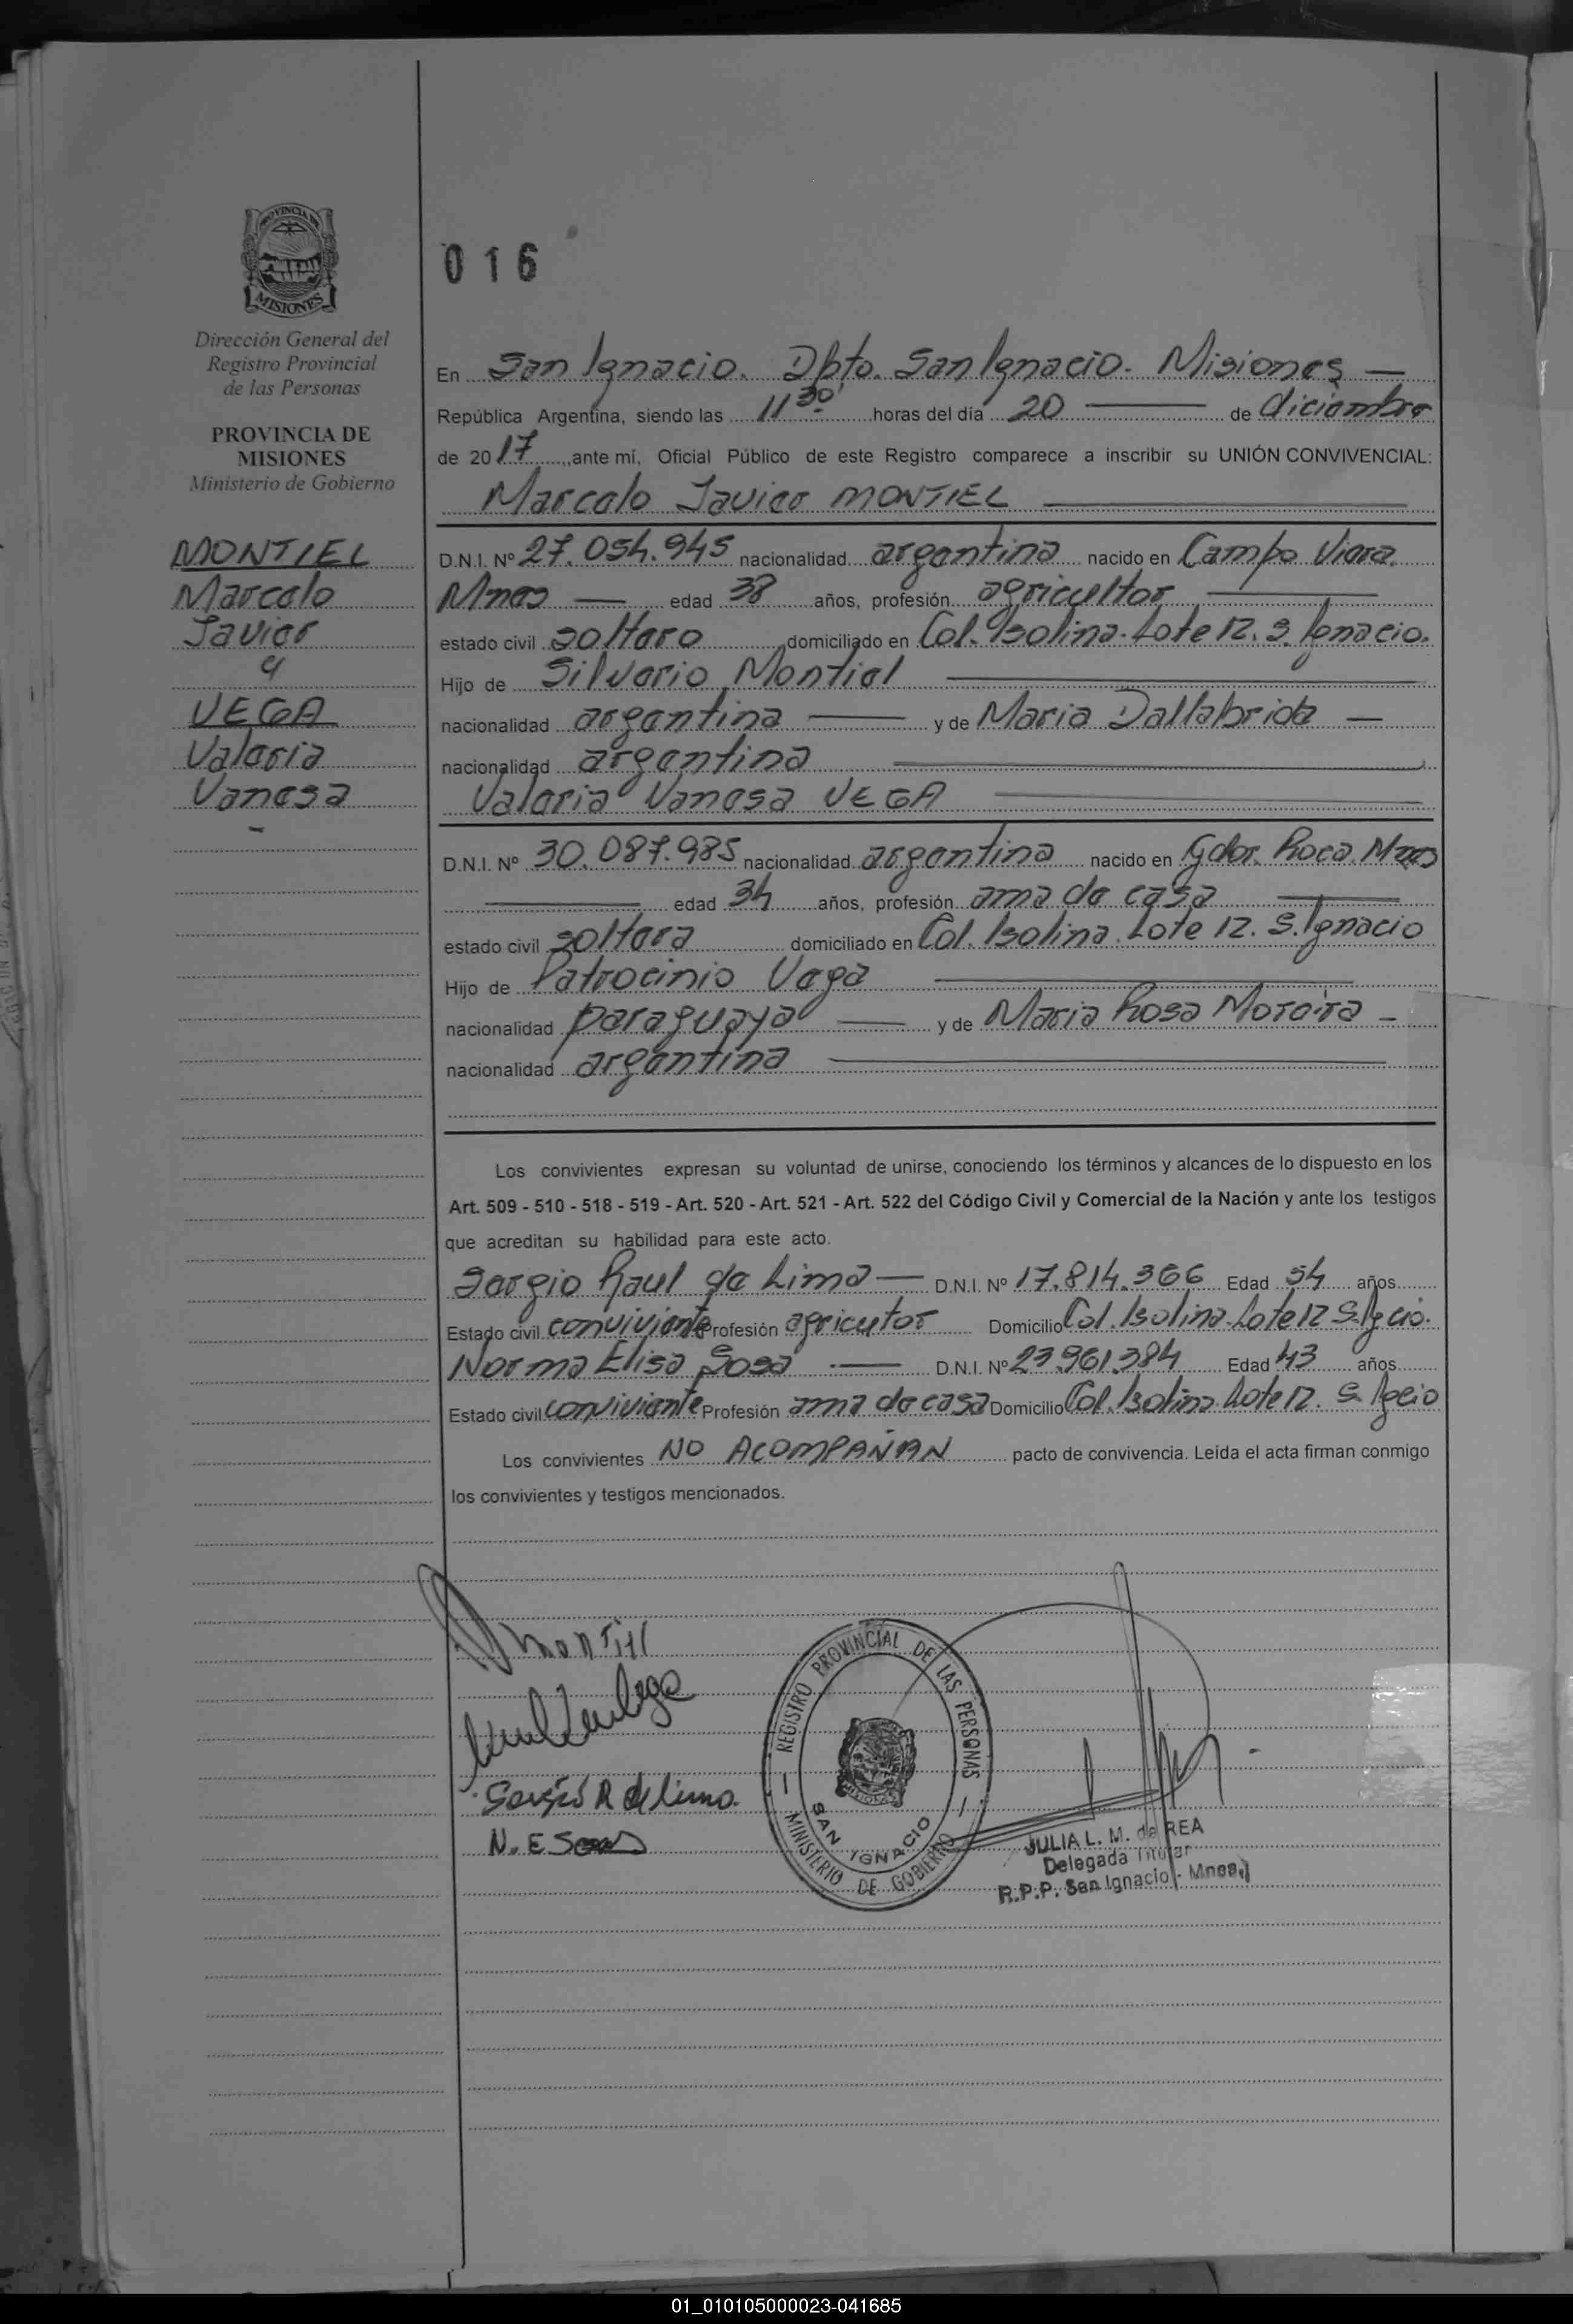 PROVINCIA DE
MISIONES
Dirección General del
Registro Provincial
de las Personas
PROVINCIA DE
MISIONES
Ministerio de Gobierno
MONTIEL
Marcelo
Javier
y
VEGA
Valeria
Vanesa
016
En San Ignacio. Dpto. San Ignacio. Misiones
República Argentina, siendo las 11 30' horas del día 20 de diciembre
de 2017, ante mí, Oficial Público de este Registro comparece a inscribir su UNIÓN CONVIVENCIAL:
Marcelo Javier MONTIEL
D.N.I. Nº 27.054.945 nacionalidad argentina nacido en Campo Viera.
Mnes edad 38 años, profesión agricultor
estado civil soltero domiciliado en Col. Isolina. Lote 12. S. Ignacio.
Hijo de Silverio Montiel
nacionalidad argentina y de Maria Dallabrida
nacionalidad argentina
Valeria Vanesa VEGA
D.N.I. Nº 30.087.985 nacionalidad argentina nacido en Gdor. Roca. Mnes
edad 34 años, profesión ama de casa
estado civil soltera domiciliado en Col. Isolina. Lote 12. S. Ignacio
Hijo de Patrocinio Vega
nacionalidad paraguaya y de Maria Rosa Moreira
nacionalidad argentina
Los convivientes expresan su voluntad de unirse, conociendo los términos y alcances de lo dispuesto en los
Art. 509 - 510 - 518 - 519 - Art. 520 - Art. 521 - Art. 522 del Código Civil y Comercial de la Nación y ante los testigos
que acreditan su habilidad para este acto.
Sergio Raul de Lima D.N.I. Nº 17.814.366 Edad 54 años
Estado civil conviviente Profesión agricutor Domicilio Col. Isolina. Lote 12 S. Igcio.
Norma Elisa Sosa D.N.I. Nº 23.961.384 Edad 43 años
Estado civil conviviente Profesión ama de casa Domicilio Col. Isolina Lote 12. S. Igcio
Los convivientes NO ACOMPAÑAN pacto de convivencia. Leída el acta firman conmigo
los convivientes y testigos mencionados.
Montiel
Sergio R de lima.
N. E Sosa
REGISTRO PROVINCIAL DE LAS PERSONAS
MINISTERIO DE GOBIERNO
SAN IGNACIO
JULIA L. M. de REA
Delegada Titular
R.P.P. San Ignacio - Mnes.
01_010105000023-041685